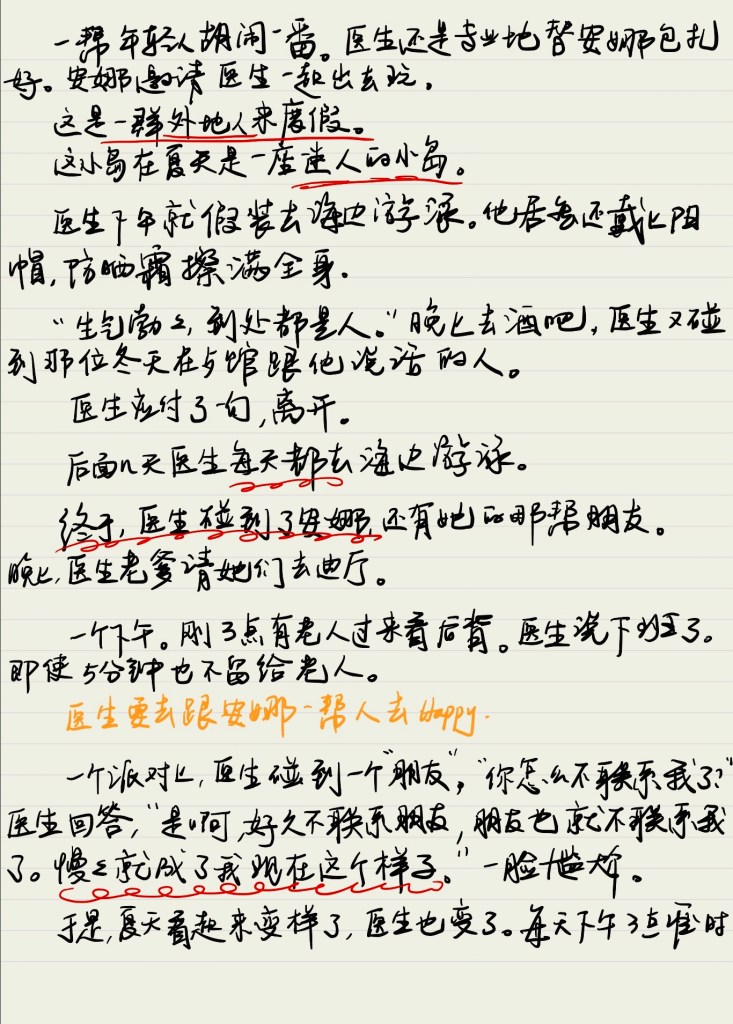 一帮年轻人胡闹一番。医生还是专业地替安娜包扎
好。安娜邀请医生一起出去玩。
这是一群外地人来度假。
这小岛在夏天是一座迷人的小岛。
医生下午就假装去海边游泳。他居然还戴上阳
帽,防晒霜擦满全身.
"生气勃々,到处都是人。"晚上去酒吧,医生又碰
到那位冬天在与馆跟他说话的人。
医生应付了句,离开。
后面n天医生每天都去海边游泳。
终于,医生碰到了安娜,还有她的那帮朋友。
晚上,医生老爹请她们去迪厅。
一个下午。刚3点有老人过来看后背。医生说下班了。
即使5分钟也不留给老人。
医生要去跟安娜一帮人去Happy.
一个派对上,医生碰到一个"朋友","你怎么不联系我了?"
医生回答,"是啊,好久不联系朋友,朋友也就不联系我
了。慢々就成了我现在这个样子。"一脸尴尬。
于是,夏天看起来变样了,医生也变了。每天下午3点准时